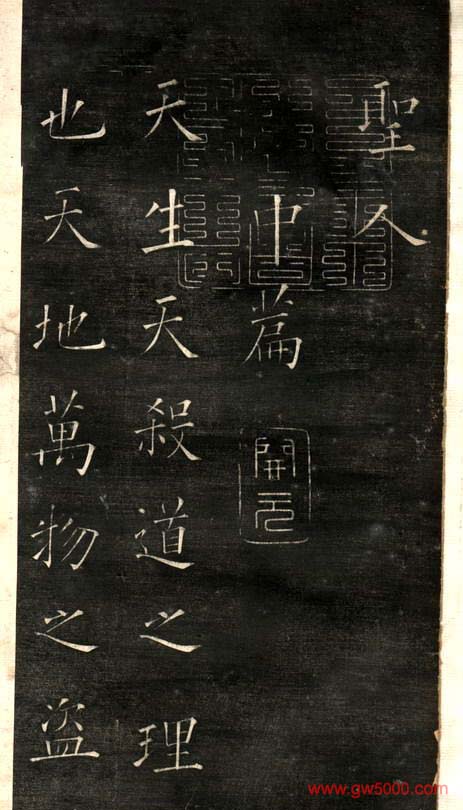 聖人
中篇
開元
天生天殺道之理
也天地萬物之盜
www.gw5000.com